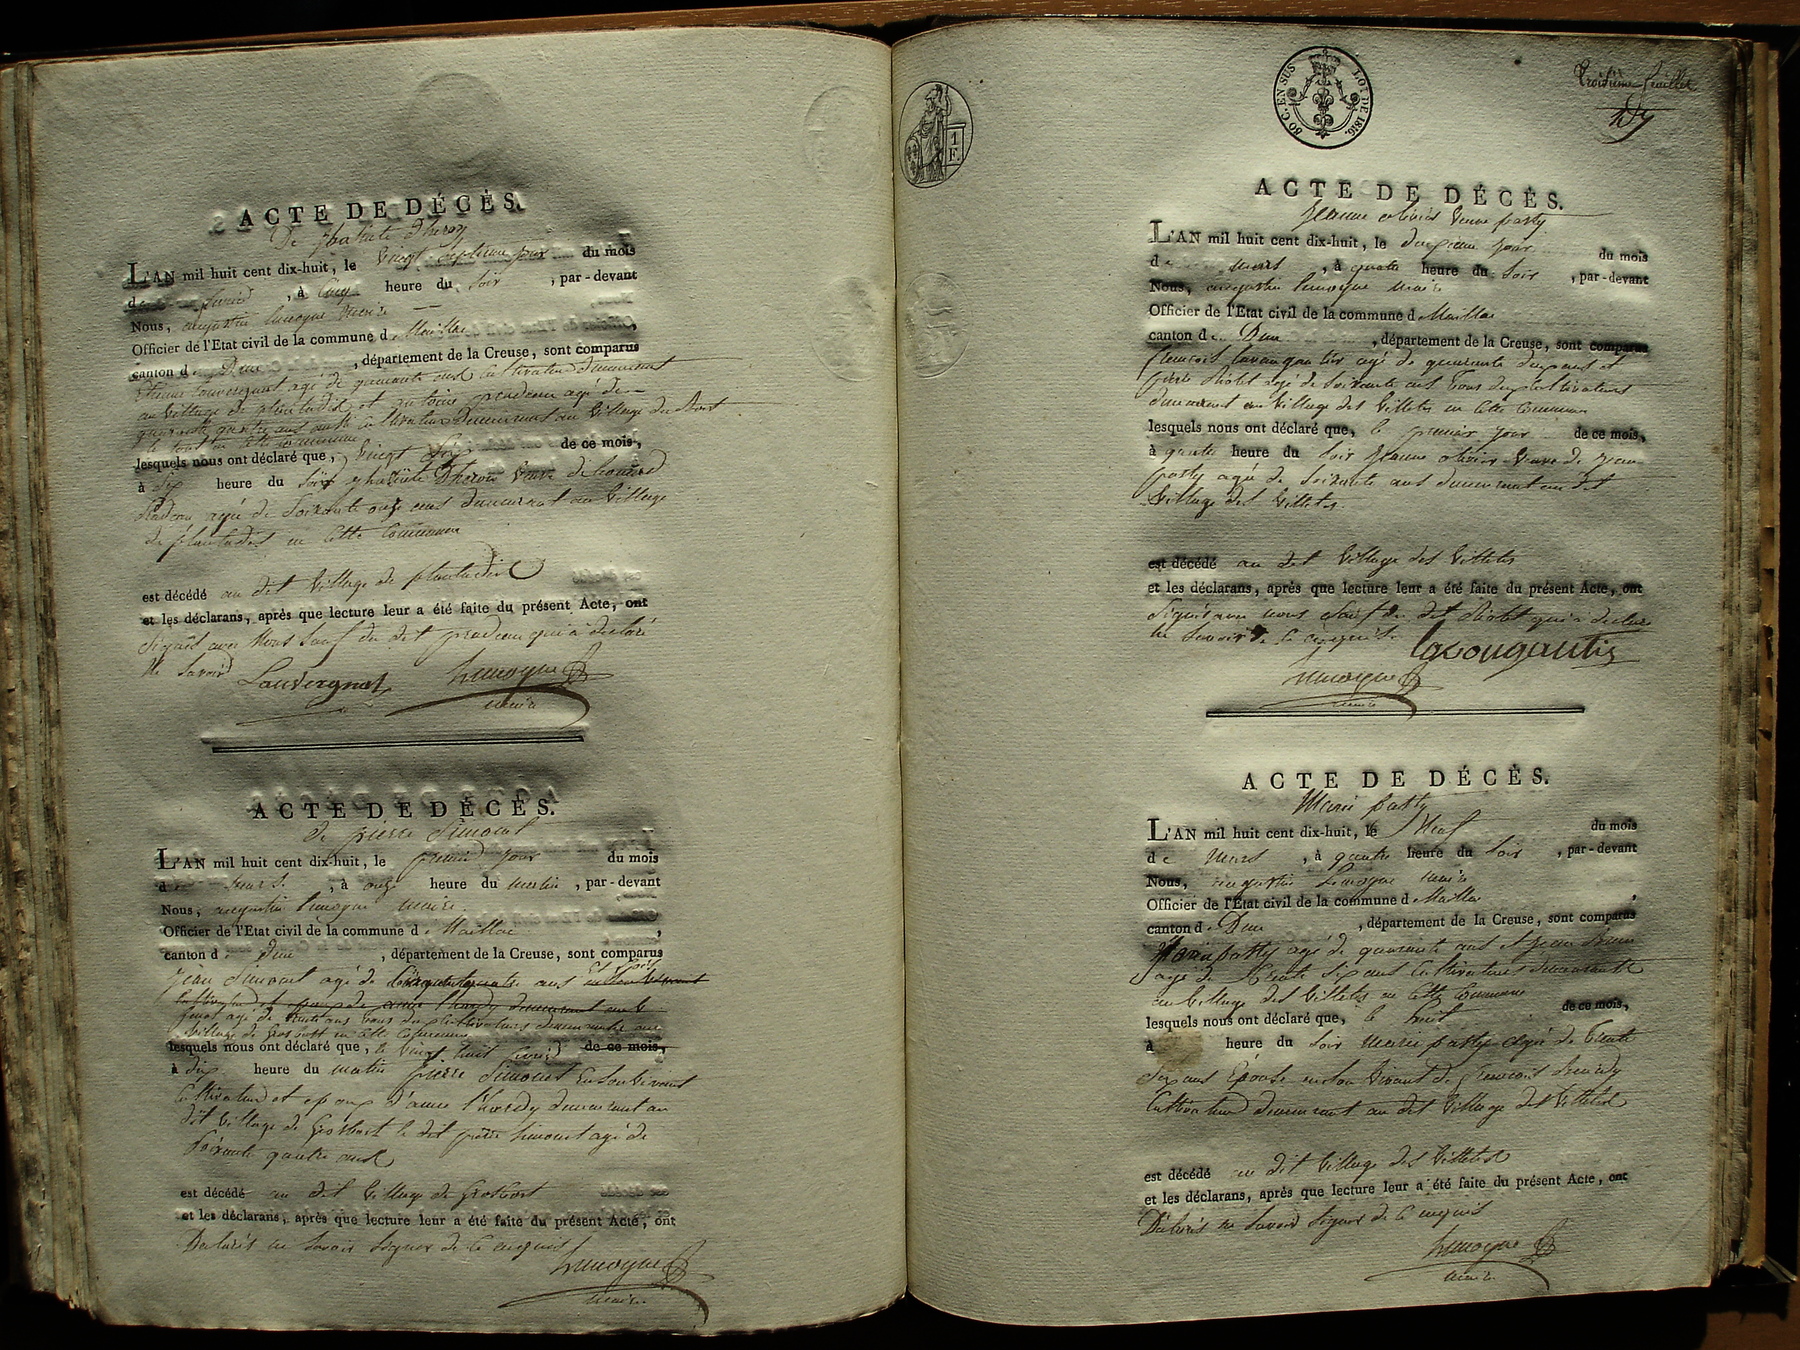 ACTE DE DÉCÈS.
L'AN mil huit cent dix-huit, le Vingt septieme jour du mois
d , à Cinq heure du Soir , par-devant
Nous, augustin Lemoyne maire
Officier de l'Etat civil de la commune d Maillac
canton d Dun , département de la Creuse, sont comparus
Etienne Lauvergnat agé de quarante ans Cultivateur demeurant
au Village de plantadis et pradeau agé de
quarante quatre ans aussi Cultivateur Demeurant au Village du
le tout en cette Commune
lesquels nous ont déclaré que, Vingt Six de ce mois,
à Six heure du Soir Veuve de
agé de Soixante onze ans demeurant au Village
de plantadis en Cette Commune
est décédé au dit Village de plantadis
et les déclarans, après que lecture leur a été faite du présent Acte, ont
Signés avec Nous Sauf du dit pradeau qui a declaré
Ne Savoir
Lauvergnat Lemoyne
maire
ACTE DE DÉCÈS.
de pierre Simonet
L'AN mil huit cent dix-huit, le premier jour du mois
d mars , à onze heure du matin , par-devant
Nous, augustin Lemoyne maire
Officier de l'Etat civil de la commune d Maillac ,
canton d Dun , département de la Creuse, sont comparus
Jean Simonet agé de Cinquante quatre ans
Cultivateur et epoux de anne demeurant au
agé de trente ans tous deux Cultivateurs demeurants au
Village de Grosbost en Cette Commune
lesquels nous ont déclaré que, le Vingt huit de ce mois,
à dix heure du matin pierre Simonet En Son Vivant
Cultivateur et epoux d'anne demeurant au
dit Village de Grosbost le dit pierre Simonet agé de
Soixante quatre ans
est décédé au dit Village de Grosbost
et les déclarans, après que lecture leur a été faite du présent Acte, ont
Declarés ne Savoir Signer de Ce enquis
Lemoyne
maire
1 F.
80 C. EN SUS LOI DE 1816.
troisième feuillet
ACTE DE DÉCÈS.
Jeanne olivier Veuve pasty
L'AN mil huit cent dix-huit, le deuxieme jour du mois
d mars , à quatre heure du Soir , par-devant
Nous, augustin Lemoyne maire
Officier de l'Etat civil de la commune d Maillac
canton d Dun , département de la Creuse, sont comparus
francois agé de quarante deux ans et
piere agé de Soixante ans tous deux Cultivateurs
demeurant au Village des Villetes en Cette Commune
lesquels nous ont déclaré que, le premier jour de ce mois,
à quatre heure du Soir Jeanne olivier Veuve de jean
pasty agé de Soixante ans demeurant au dit
Village des Villetes
est décédé au dit Village des Villetes
et les déclarans, après que lecture leur a été faite du présent Acte, ont
Signés avec nous Sauf du dit qui a declaré
ne Savoir de Ce enquis
Lacougautis
Lemoyne
maire
ACTE DE DÉCÈS.
Marie pasty
L'AN mil huit cent dix-huit, le Neuf du mois
d e Mars , à quatre heure du Soir , par-devant
Nous, augustin Lemoyne maire
Officier de l'Etat civil de la commune d Maillac ,
canton d Dun , département de la Creuse, sont comparus
pasty agé de quarante ans et Jean
agé de trente Six ans Cultivateurs demeurants
au Village des Villetes en Cette Commune
lesquels nous ont déclaré que, le huit de ce mois,
à heure du Soir Marie pasty agée de trente
Six ans Epouse en Son Vivant de francois
Cultivateur demeurant au dit Village des Villetes
est décédé au dit Village des Villetes
et les déclarans, après que lecture leur a été faite du présent Acte, ont
Déclarés ne Savoir Signer de Ce enquis
Lemoyne
maire